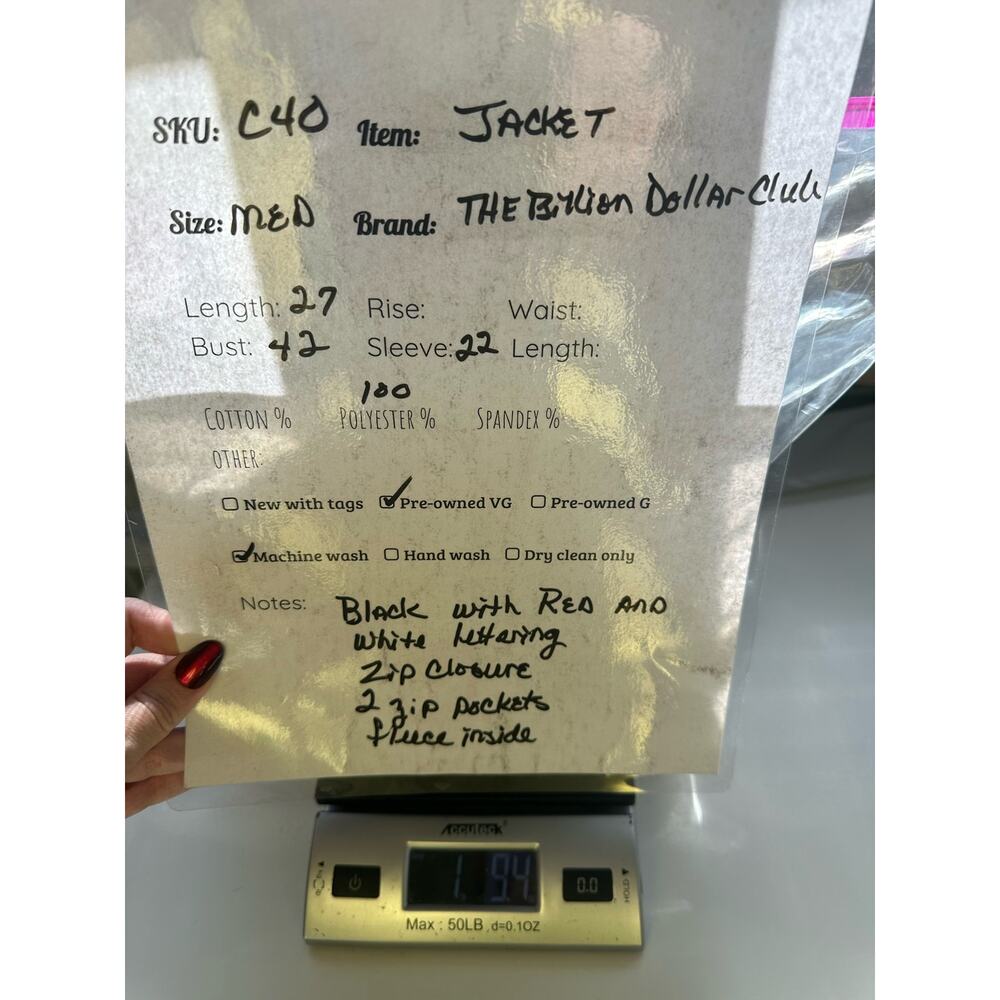 SKU: C40 Item: JACKET
Size: MED Brand: THE Billion Dollar Club
Length: 27 Rise: Waist:
Bust: 42 Sleeve: 22 Length:
100
COTTON % POLYESTER % SPANDEX %
OTHER:
New with tags Pre-owned VG Pre-owned G
Machine wash Hand wash Dry clean only
Notes: Black with RED AND
white lettering
Zip Closure
2 zip pockets
fleece inside
Accuteck
1 9.4
0.0
HOLD
Max : 50LB d=0.1OZ